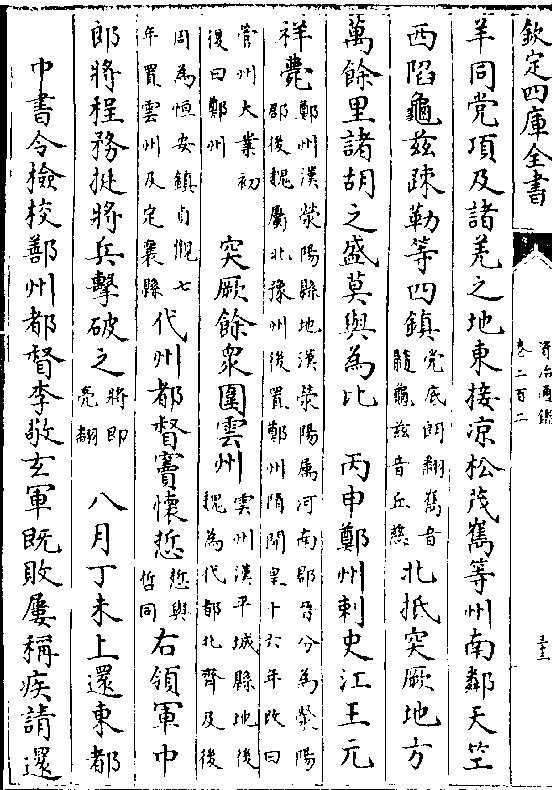 欽定四庫全書
資治通鑑
卷二百二
羊同党項及諸羌之地東接凉松茂嶲等州南鄰天竺
西陷龜玆疎勒等四鎮党底朗翻嶲音髓龜玆音丘慈北抵突厥地方
萬餘里諸胡之盛莫與為比　丙申鄭州刺史江王元
祥薨鄭州漢滎陽縣地漢滎陽屬河南郡晉分為滎陽郡後魏屬北豫州後置鄭州隋開皇十六年改曰
管州大業初復曰鄭州　突厥餘衆圍雲州雲州漢平城縣地後魏為代都北齊及後
周為恒安鎮貞觀七年置雲州及定襄縣代州都督竇懷悊悊與哲同右領軍中
郎將程務挺將兵擊破之將即亮翻　八月丁未上還東都
中書令檢校鄯州都督李敬玄軍既敗屢稱疾請還